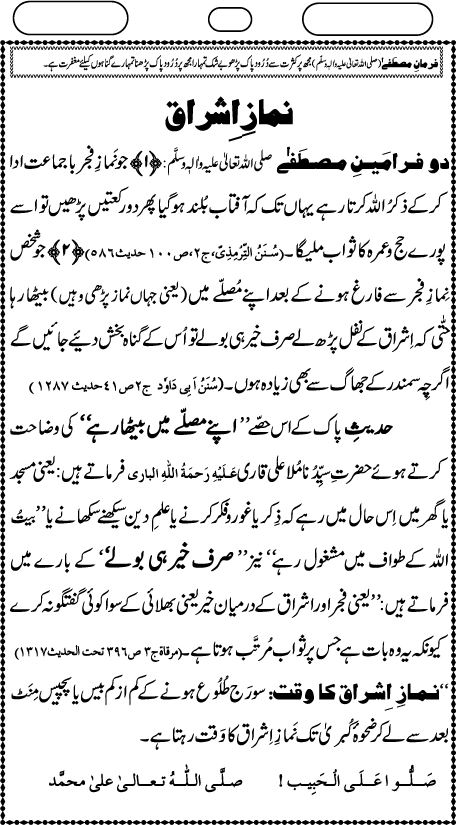 فرمانِ مصطفےٰ (صلی اللہ تعالیٰ علیہ والہٖ وسلم) مجھ پر کثرت سے دُرُود پاک پڑھو بے شک تمہارا مجھ پر دُرُود پاک پڑھنا تمہارے گناہوں کیلئے مغفرت ہے۔
نمازِ اِشراق
دو فرامینِ مصطفےٰ صلی اللہ تعالیٰ علیہ والہٖ وسلَّم: ﴿۱﴾ جو نَمازِ فجر با جماعت ادا
کر کے ذکرُ اللہ کرتا رہے یہاں تک کہ آفتاب بُلند ہو گیا پھر دو رکعتیں پڑھیں تو اسے
پورے حج و عمرہ کا ثواب ملیگا۔ (سُنَنُ التِّرمِذِیّ، ج۲، ص۱۰۰ حدیث ۵۸۶) ﴿۲﴾ جو شخص
نمازِ فجر سے فارغ ہونے کے بعد اپنے مُصلّے میں (یعنی جہاں نماز پڑھی وہیں) بیٹھا رہا
حتّٰی کہ اِشراق کے نفل پڑھ لے صرف خیر ہی بولے تو اُس کے گناہ بخش دیئے جائیں گے
اگرچِہ سمندر کے جھاگ سے بھی زیادہ ہوں۔ (سُنَنُ اَبِی دَاوٗد ج۲ ص۴۱ حدیث ۱۲۸۷)
حدیثِ پاک کے اس حصّے ”اپنے مصلّے میں بیٹھا رہے“ کی وضاحت
کرتے ہوئے حضرتِ سیِّدُنا مُلا علی قاری عَلَیْہِ رَحمَۃُ اللّٰہِ الباری فرماتے ہیں: یعنی مسجد
یا گھر میں اِس حال میں رہے کہ ذِکر یا غور و فکر کرنے یا علمِ دین سیکھنے سکھانے یا ”بیتُ
اللہ کے طواف میں مشغول رہے“ نیز ”صرف خیر ہی بولے“ کے بارے میں
فرماتے ہیں: ”یعنی فجر اور اشراق کے درمیان خیر یعنی بھلائی کے سوا کوئی گفتگو نہ کرے
کیونکہ یہ وہ بات ہے جس پر ثواب مُرتَّب ہوتا ہے۔ (مرقاۃ ج۳ ص۳۹۶ تحت الحدیث ۱۳۱۷)
“نمازِ اِشراق کا وقت: سورج طُلُوع ہونے کے کم از کم بیس یا پچیس مِنَٹ
بعد سے لے کر ضحوۂ کُبریٰ تک نَمازِ اِشراق کا وَقت رہتا ہے۔
صَلُّوا عَلَی الْحَبِیب! صلَّی اللّٰہُ تعالیٰ علیٰ محمَّد